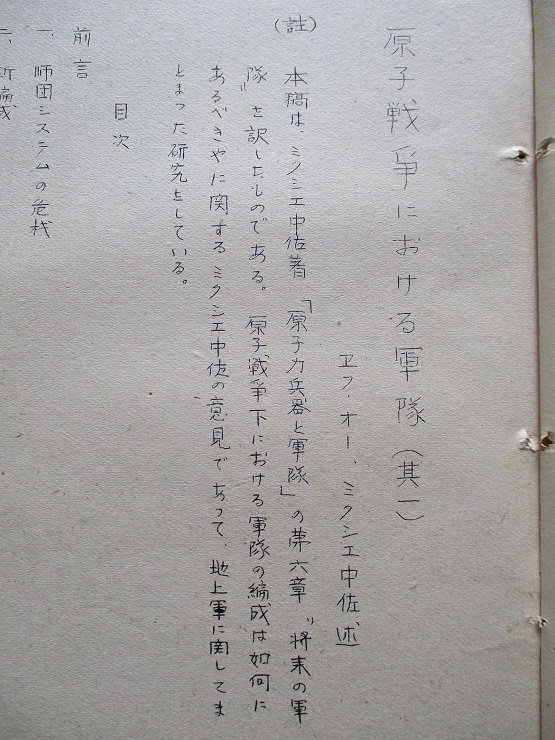 原子戦争における軍隊（其一）
エフ・オー、ミクシエ中佐述
（註）本稿は、ミクシエ中佐著「原子力兵器と軍隊」の第六章〝将来の軍
隊〟を訳したものである。原子戦争下における軍隊の編成は如何に
あるべきやに関するミクシエ中佐の意見であって、地上軍に関してま
とまった研究をしている。
目次
前言
一、師団システムの危機
二、新編成